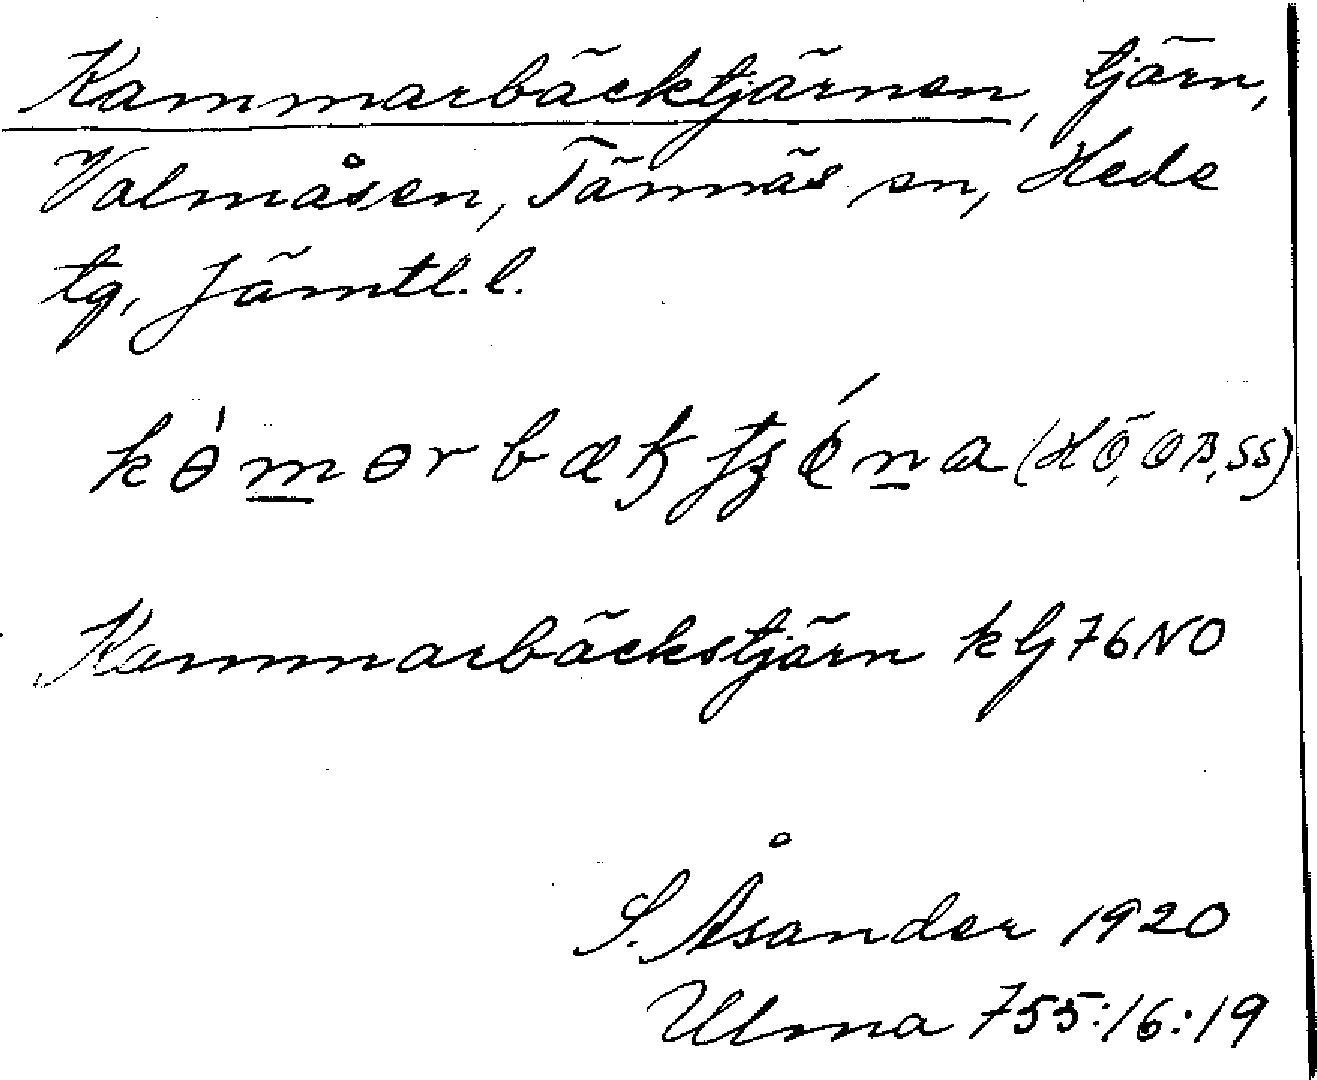 Kammarbäcktjärnen, tjärn,
Valmåsen, Tännäs sn, Hede
tg, Jämtl. l.
(HÖ, OB, SS)
Kammarbäckstjärn klj 76 NO
S. Åsander 1920
Ulma 755:16:19